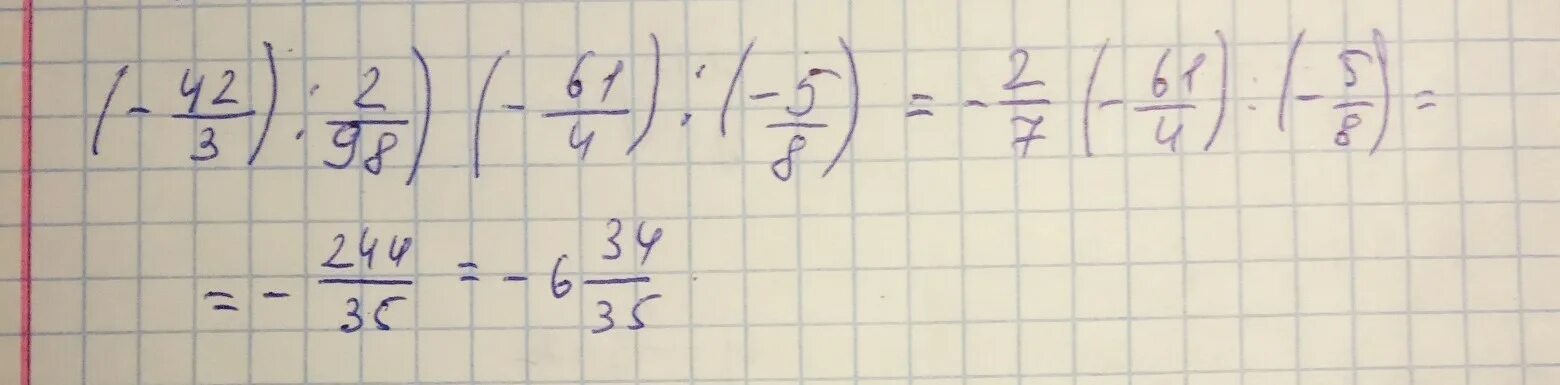 (- 42/3) : 2/98) (- 61/4) : (- 5/8) = - 2/7 (- 61/4) : (- 5/8) =
= - 244/35 = - 6 34/35